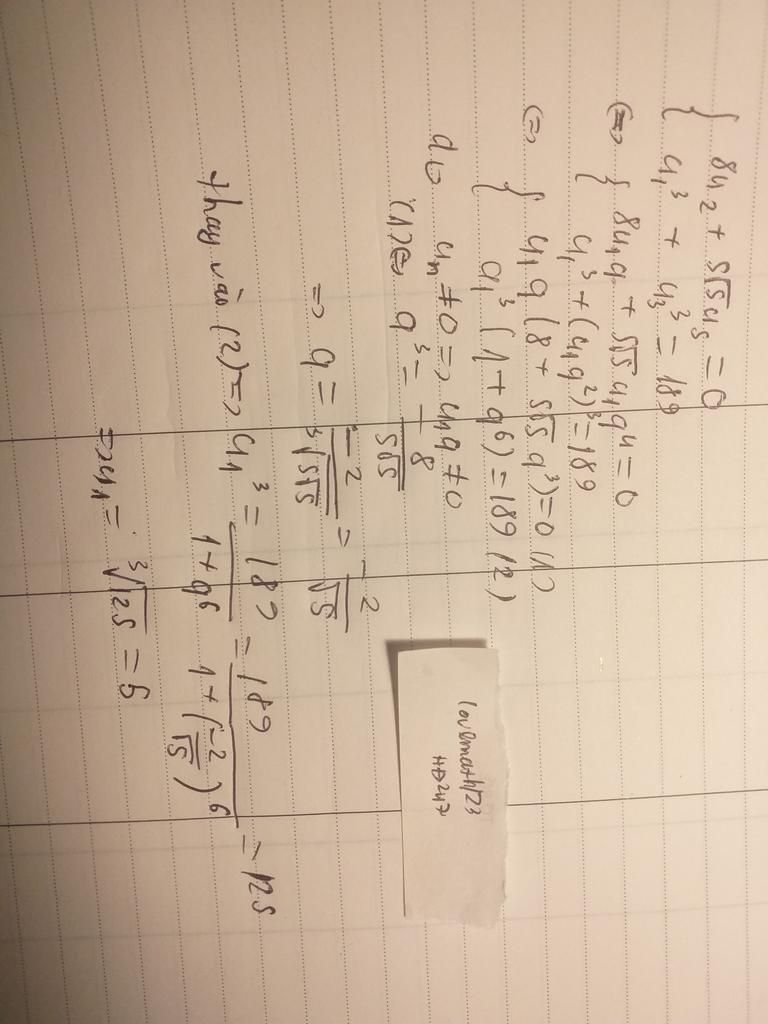 { 8u₂ + 5√5 u₅ = 0
{ u₁³ + u₃³ = 189
<=> { 8u₁q + 5√5 u₁q⁴ = 0
{ u₁³ + (u₁q²)³ = 189
<=> { u₁q (8 + 5√5 q³) = 0 (1)
{ u₁³ (1 + q⁶) = 189 (2)
do uₙ ≠ 0 => u₁q ≠ 0
(1) <=> q³ = -8/5√5
=> q = -2/³√5√5 = -2/√5
thay vào (2) => u₁³ = 189/1+q⁶ = 189/1+(-2/√5)⁶ = 125
=> u₁ = ³√125 = 5
lovemath123
HD247